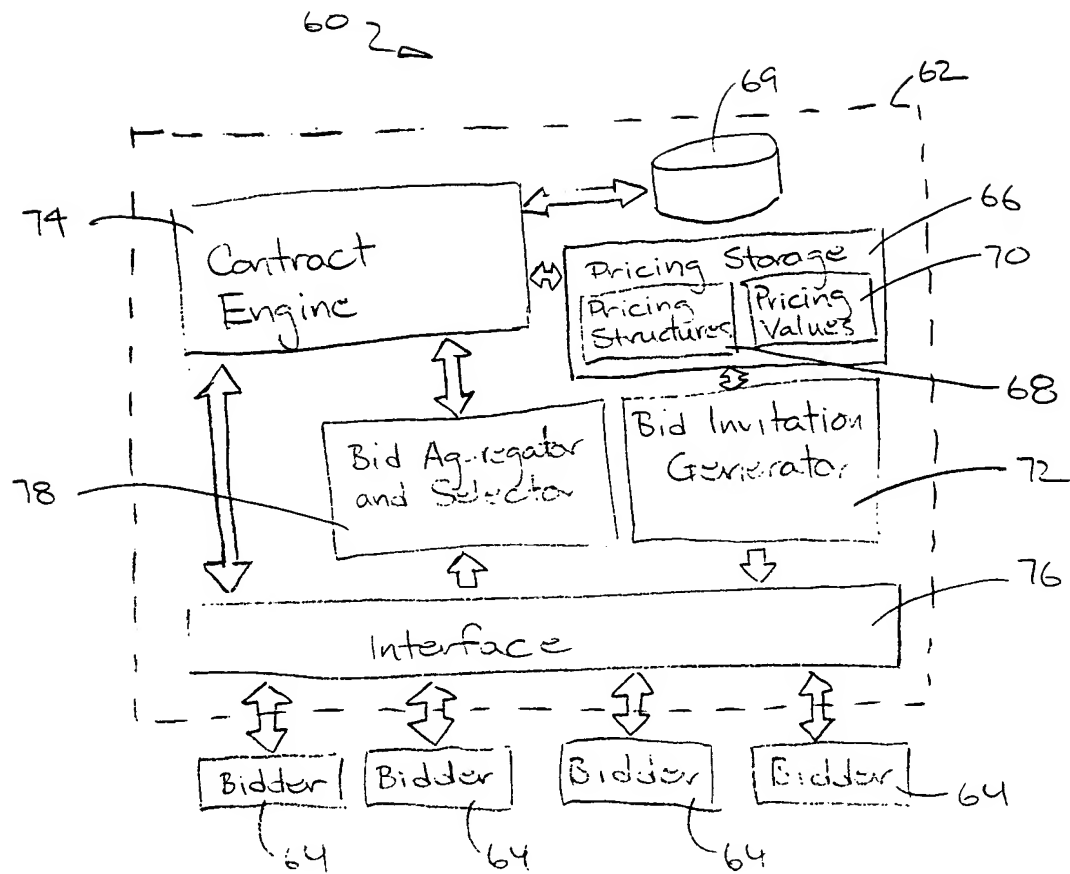 60
62
69
74
Contract
Engine
66
Pricing Storage
70
Pricing
Structures
Pricing
Values
68
Bid Aggregator
and Selector
Bid Invitation
Generator
78
72
76
Interface
Bidder
Bidder
Bidder
Bidder
64
64
64
64